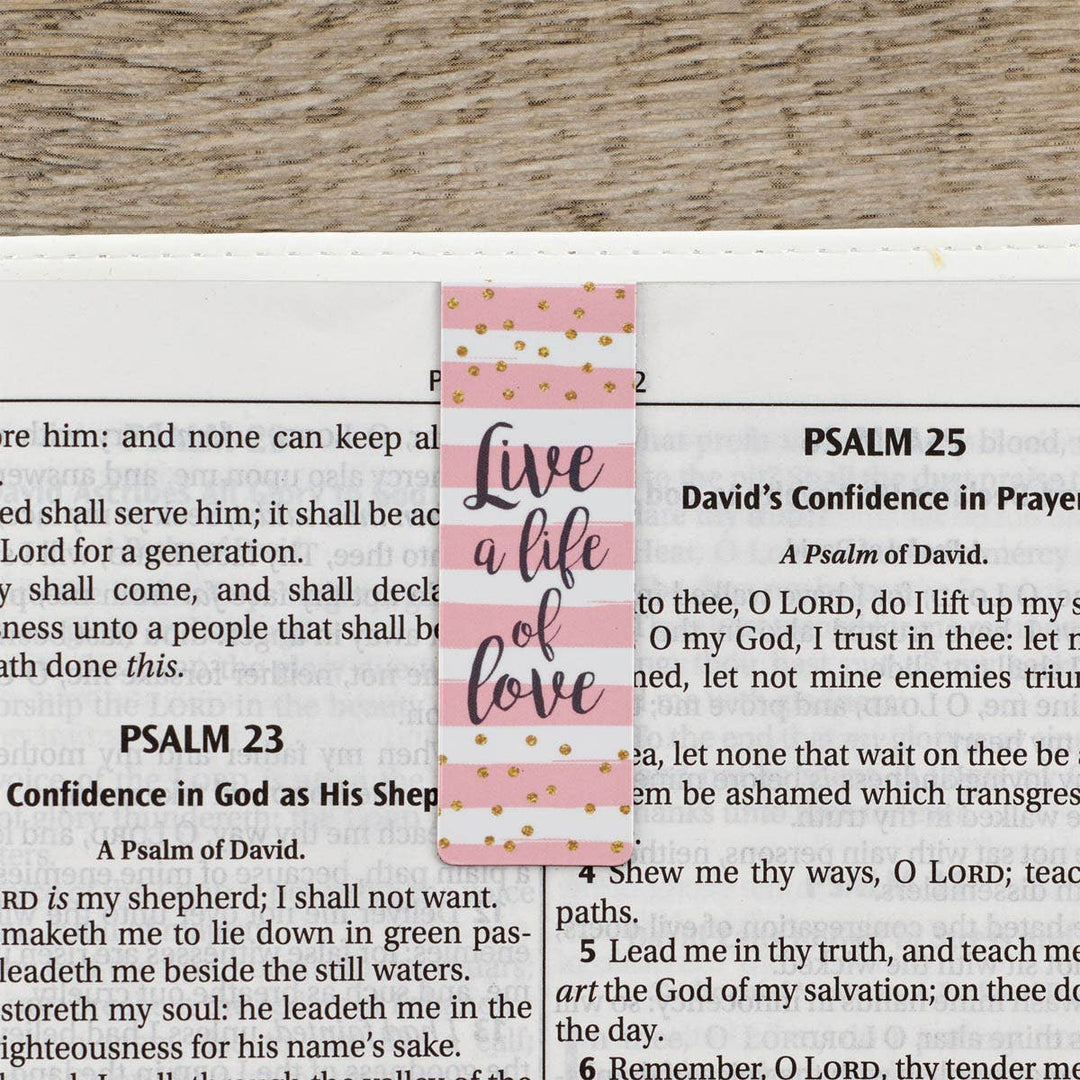 Live
a life
of
love
2
ore him: and none can keep al
ed shall serve him; it shall be ac
Lord for a generation.
y shall come, and shall decla
ness unto a people that shall be
ath done this.
PSALM 23
Confidence in God as His Shep
A Psalm of David.
RD is my shepherd; I shall not want.
maketh me to lie down in green pas-
leadeth me beside the still waters.
storeth my soul: he leadeth me in the
ighteousness for his name's sake.
through the valley of the
PSALM 25
David's Confidence in Prayer
A Psalm of David.
to thee, O LORD, do I lift up my s
O my God, I trust in thee: let m
ned, let not mine enemies trium
ea, let none that wait on thee be a
em be ashamed which transgres
4 Shew me thy ways, O LORD; teac
paths.
5 Lead me in thy truth, and teach me
art the God of my salvation; on thee do
the day.
6 Remember, O LORD, thy tender me